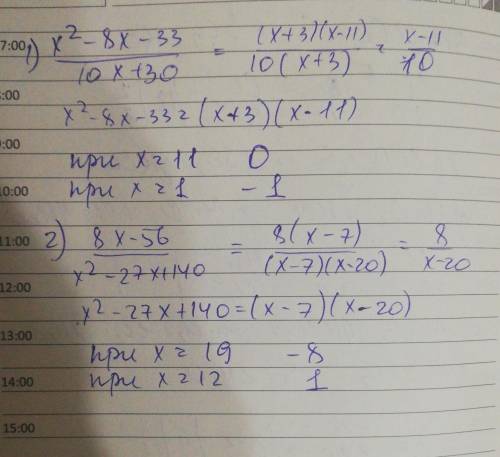 7:00 1) x² - 8x - 33 / 10x + 30 = (x+3)(x-11) / 10(x+3) = x-11 / 10
8:00 x² - 8x - 33 = (x+3)(x-11)
9:00 при x = 11 0
10:00 при x = 1 -1
11:00 2) 8x-56 / x² - 27x+140 = 8(x-7) / (x-7)(x-20) = 8 / x-20
12:00 x² - 27x + 140 = (x-7)(x-20)
13:00 при x = 19 -8
14:00 при x = 12 1
15:00